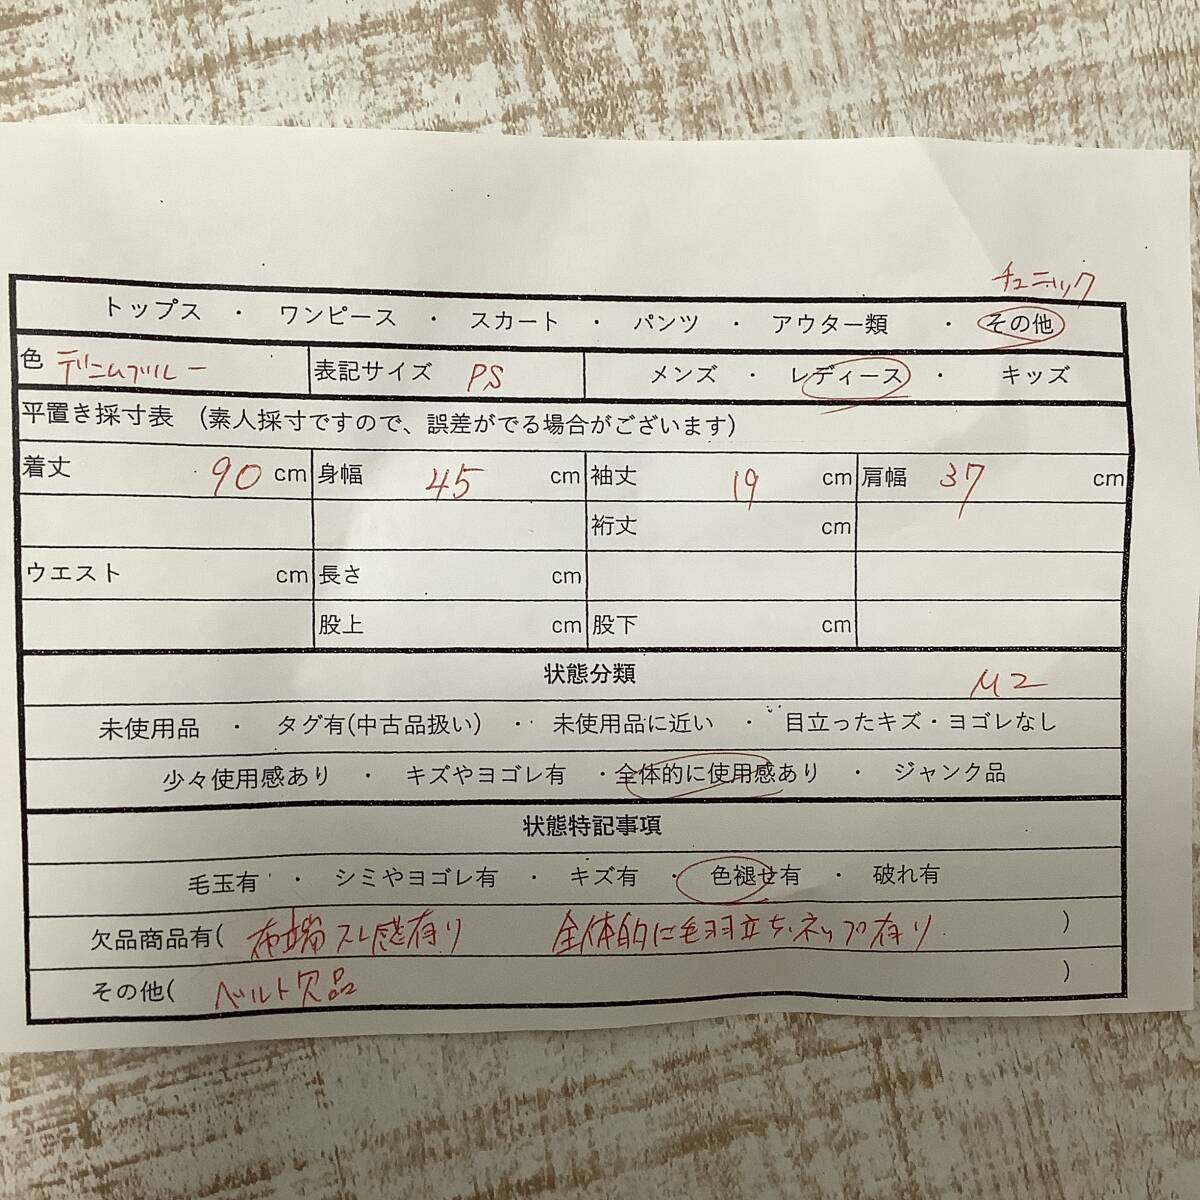 チュニック
トップス ・ ワンピース ・ スカート ・ パンツ ・ アウター類 ・ その他
色 デニムブルー 表記サイズ PS メンズ ・ レディース ・ キッズ
平置き採寸表 (素人採寸ですので、誤差がでる場合がございます)
着丈 90 cm 身幅 45 cm 袖丈 19 cm 肩幅 37 cm
裄丈 cm
ウエスト cm 長さ cm
股上 cm 股下 cm
状態分類
M2
未使用品 ・ タグ有(中古品扱い) ・ 未使用品に近い ・ 目立ったキズ・ヨゴレなし
少々使用感あり ・ キズやヨゴレ有 ・全体的に使用感あり ・ ジャンク品
状態特記事項
毛玉有 ・ シミやヨゴレ有 ・ キズ有 ・ 色褪せ有 ・ 破れ有
欠品商品有( 布端スレ感有り 全体的に毛羽立ち、ネップ有り )
その他( ベルト欠品 )